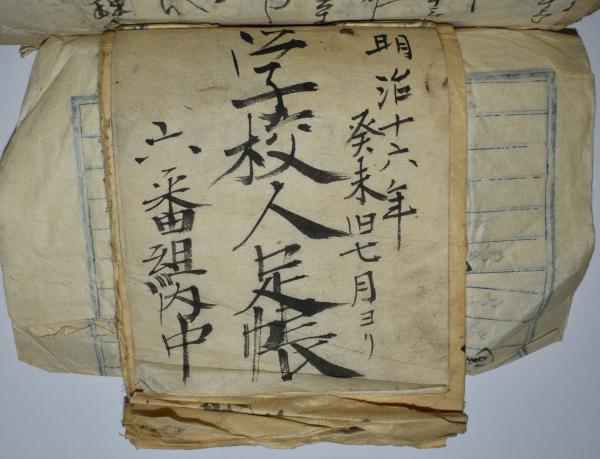 明治十六年
癸未旧七月ヨリ
学校人足帳
六番組内中